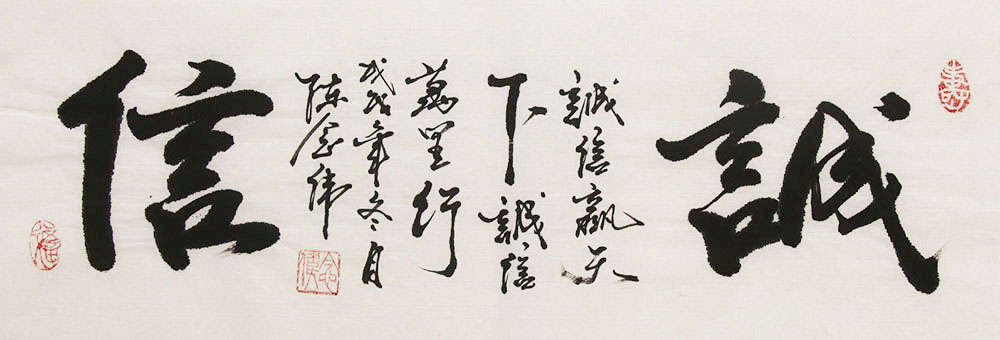 誠
誠信贏天
下誠信
萬里行
戊戌年冬月
陳念伟
信
壽